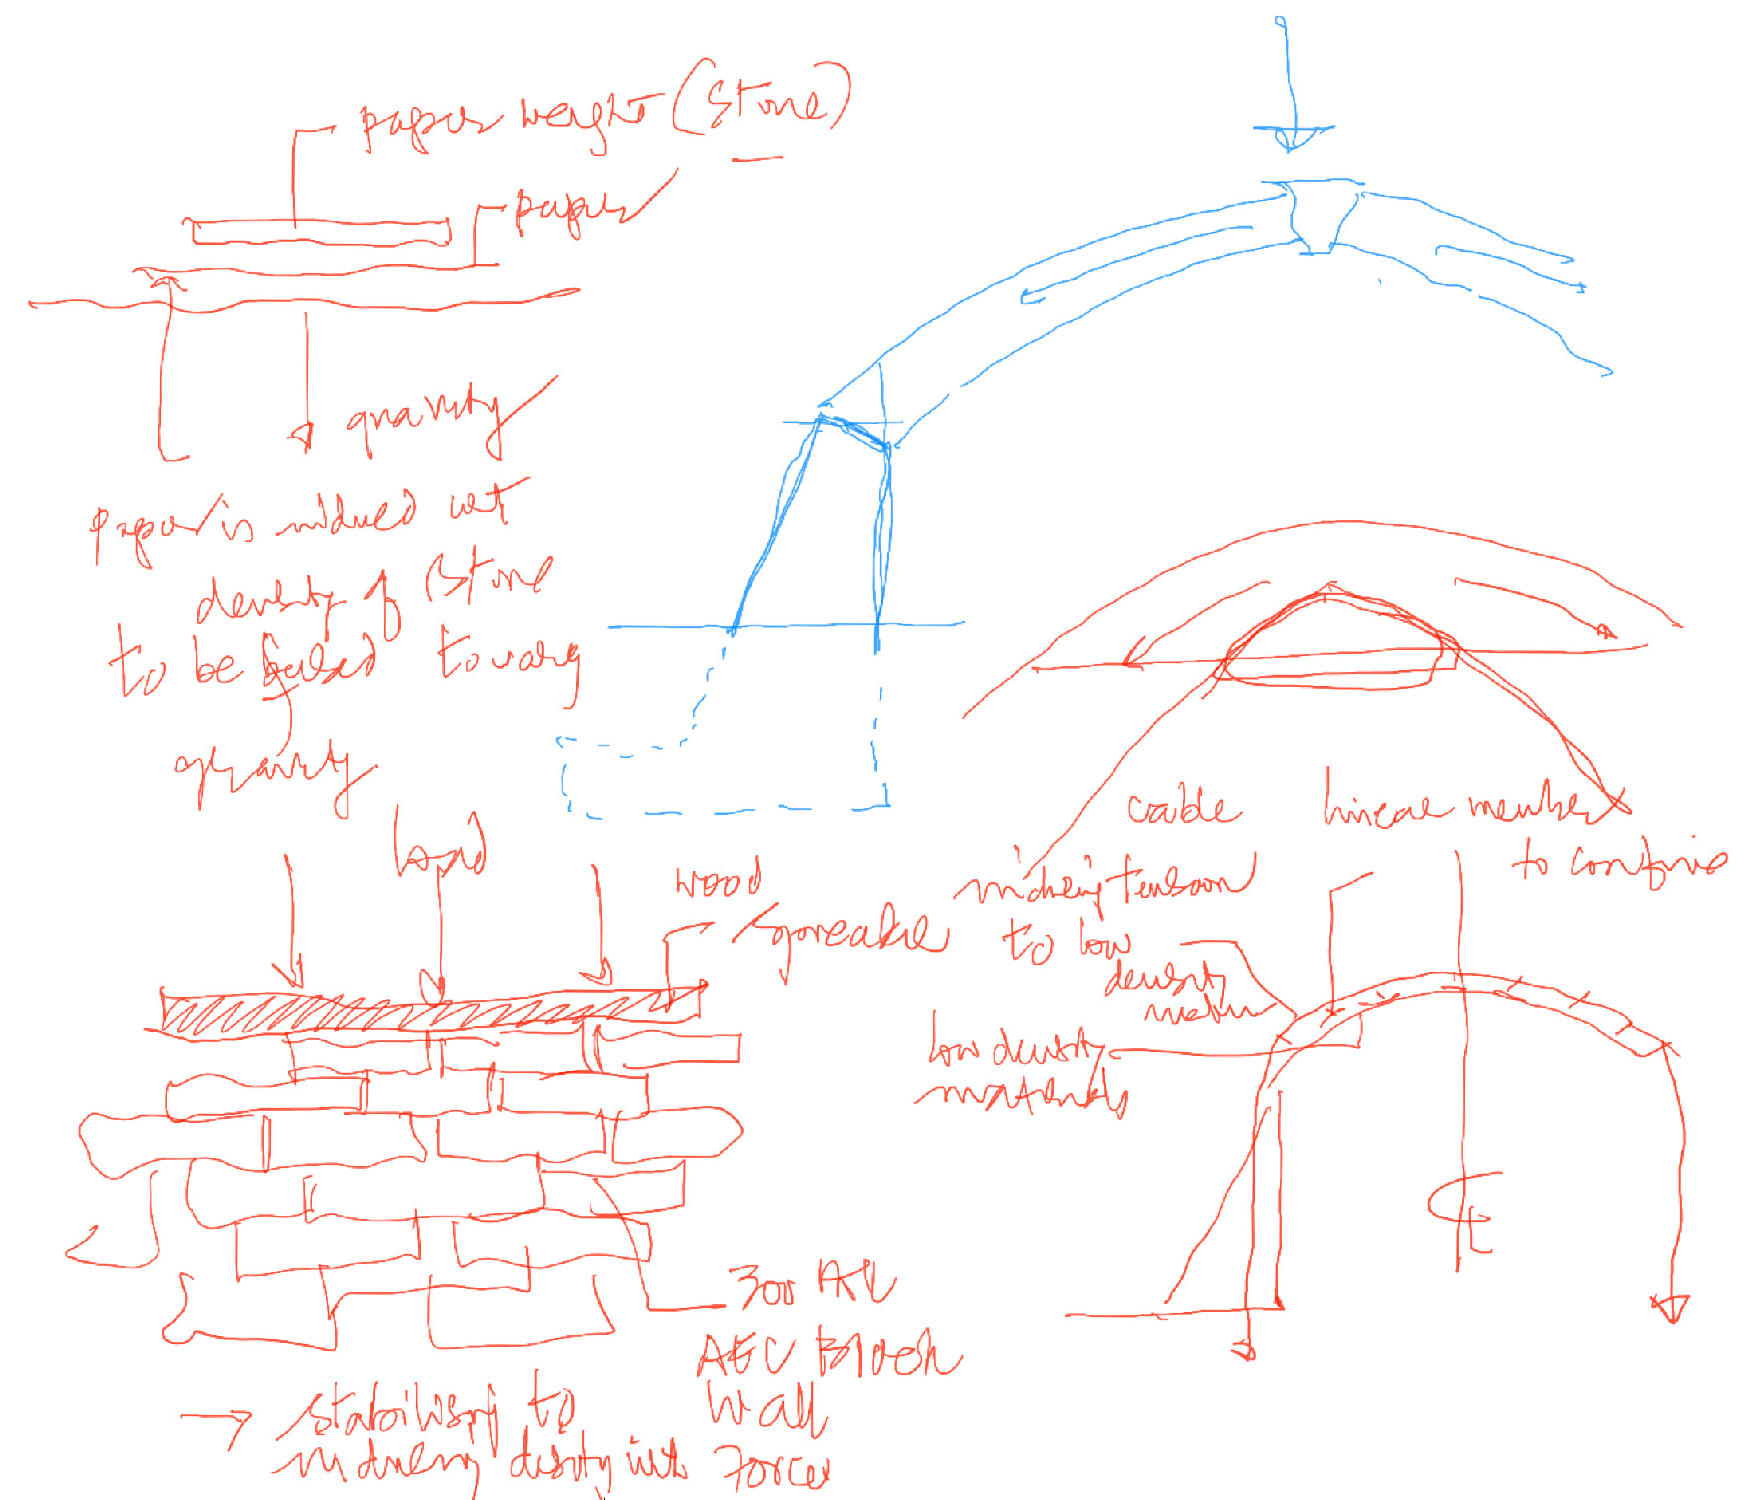 paper weight (stone)
paper
gravity
paper is induced wt
density of stone
to be pulled towards
gravity.
load
wood
cable
linear member
to confine
inducing tension
to low
density
low density
materials
℄
300
AEC Block
Wall
→ stabilising to
inducing density with Forces